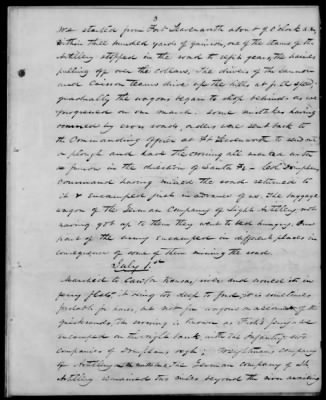 3
We started from Fort Leavenworth about 9 O'clock a.m.
Within three hundred yards of garrison, one of the teams of the
Artillery stopped in the road to refix gears, the hames
pulling off over the collars. The drivers of the cannon
and Caisson teams drive up the hills at full speed;
gradually the wagons began to drop behind as we
progressed on our march. Some mistakes having
occurred by cross roads, orders was sent back to
the Commanding Officer at Ft Leavenworth to send out
a plough and had the crossing all marked with
a furrow in the direction of Santa Fe. Col. Doniphan's
Command having missed the road returned to
it & encamped just in advance of us. The baggage
wagon of the German Company of Light Artillery not
having got up to them they went to bed hungry. One
part of the army encamped in different places in
consequence of some of them missing the road.
July 1st
Marched to Kansas river and crossed it in
ferry flats, it being too deep to ford; it is sometimes
fordable for horses, but not for wagons on account of the
quicksands, the crossing is known as Fish's ferry, and
encamped on the right bank with the Infantry, two
companies of Doniphan's regt; & Weightman's company
of Artillery, the German company of Lt.
Artillery remained two miles beyond the river awaiting